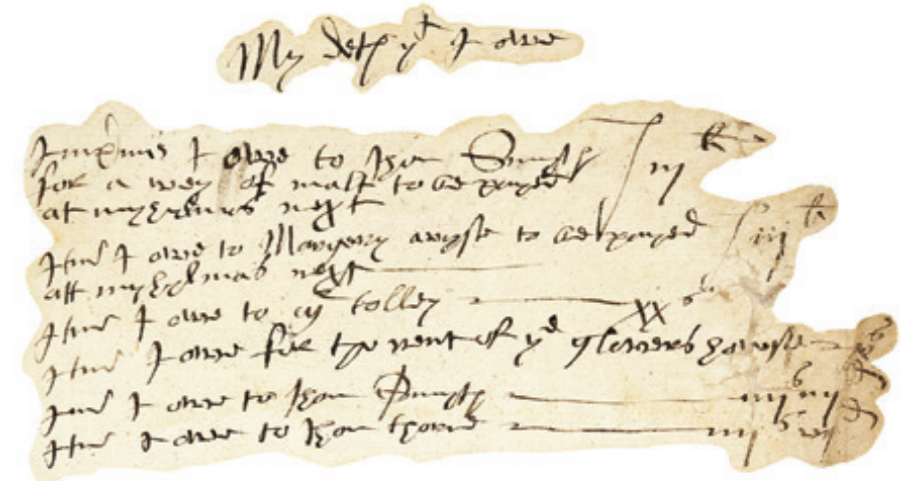 My dets yt I owe
Inprimis I owe to Jhon Smyth iij li
for a wey of malt to be payed
at myhelmas next
Itm I owe to Margery to be payed iij li
att myhelmas next
Itm I owe to tolley xx s
Itm I owe for the rent of ye glovers howse
Itm I owe to Jhon Smyth iiij s iiij d
Itm I owe to Jhon